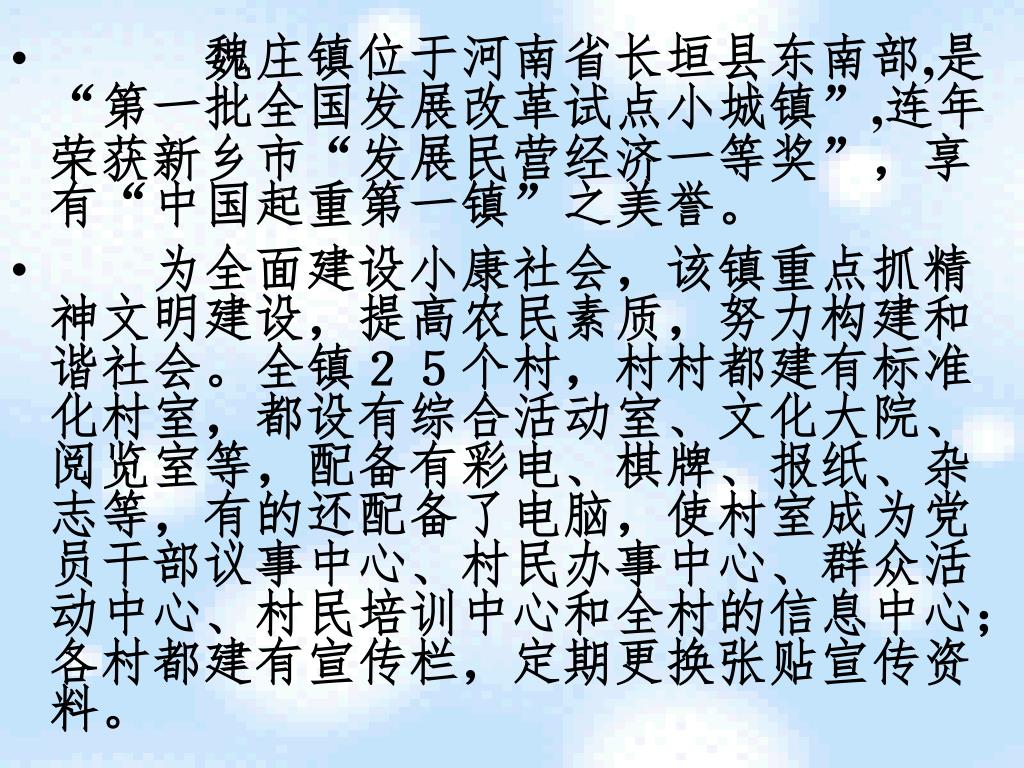 • 魏庄镇位于河南省长垣县东南部,是
“第一批全国发展改革试点小城镇”,连年
荣获新乡市“发展民营经济一等奖”，享
有“中国起重第一镇”之美誉。
• 为全面建设小康社会，该镇重点抓精
神文明建设，提高农民素质，努力构建和
谐社会。全镇２５个村，村村都建有标准
化村室，都设有综合活动室、文化大院、
阅览室等，配备有彩电、棋牌、报纸、杂
志等，有的还配备了电脑，使村室成为党
员干部议事中心、村民办事中心、群众活
动中心、村民培训中心和全村的信息中心；
各村都建有宣传栏，定期更换张贴宣传资
料。